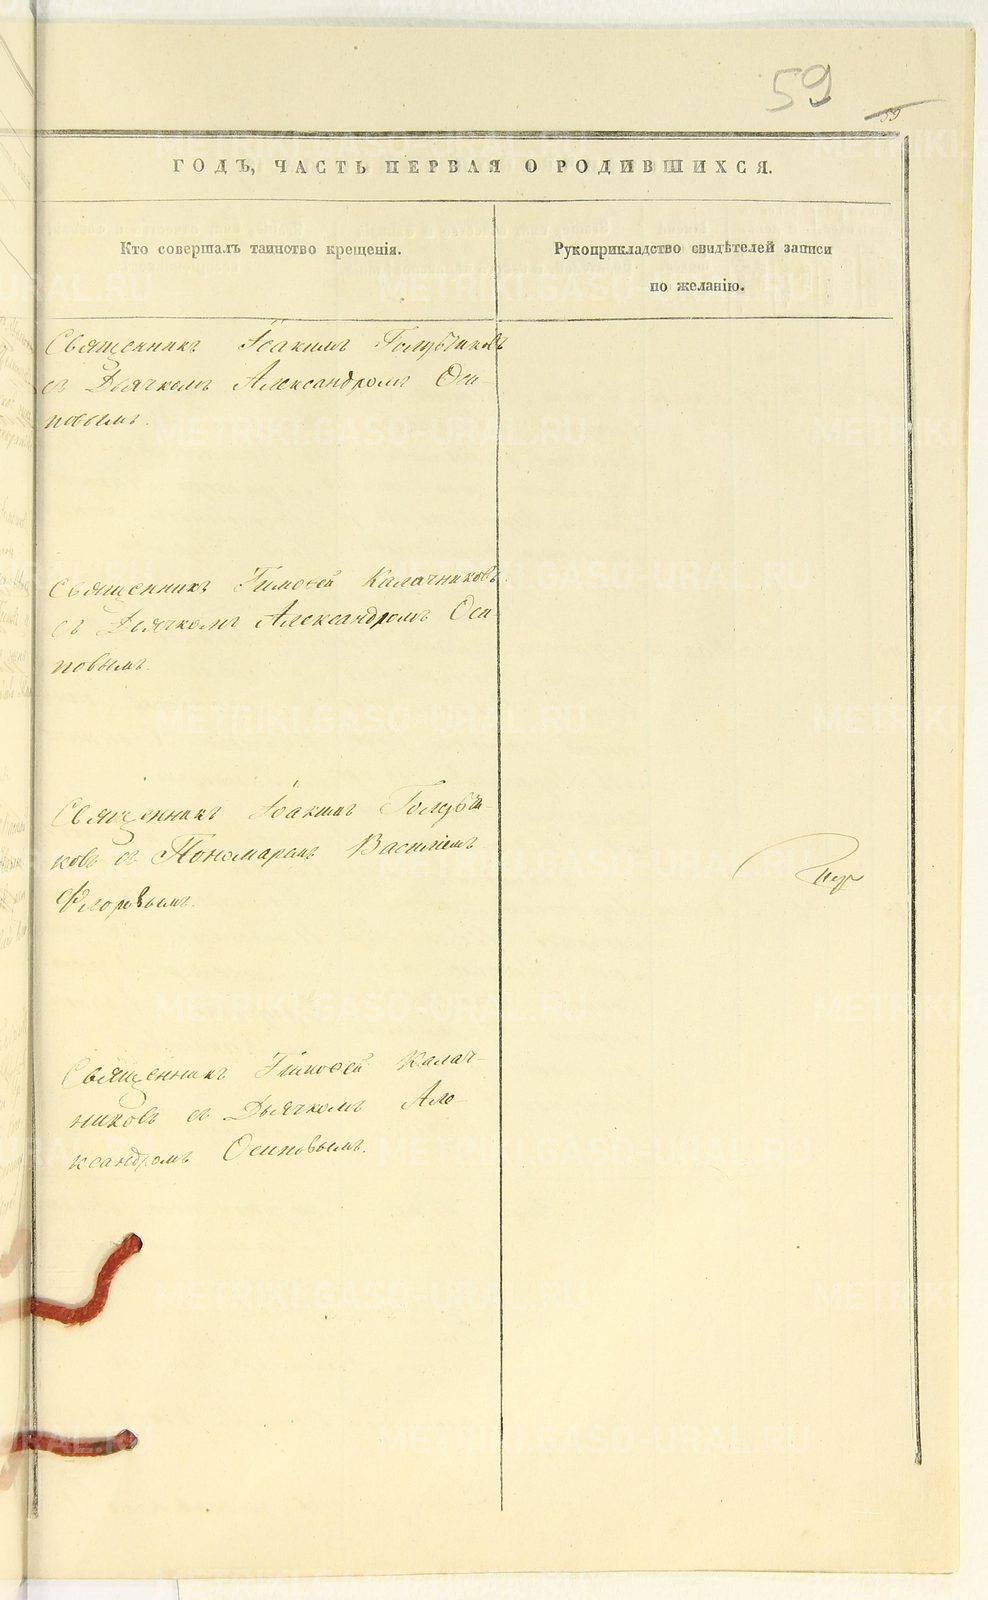 59
59
ГОДЪ, ЧАСТЬ ПЕРВАЯ О РОДИВШИХСЯ.
Кто совершалъ таинство крещенія.
Рукоприкладство свидѣтелей записи
по желанію.
Священникъ Іоакимъ Голубчиковъ
съ Дьячкомъ Александромъ Оси-
повымъ.
Священникъ Тимоѳей Калачниковъ
съ Дьячкомъ Александромъ Оси
повымъ.
Священникъ Іоакимъ Голубчи-
ковъ съ Пономаремъ Василіемъ
Флоровымъ.
Священникъ Тимоѳей Калач-
никовъ съ Дьячкомъ Але-
ксандромъ Осиповымъ.
METRIKI.GASO-URAL.RU